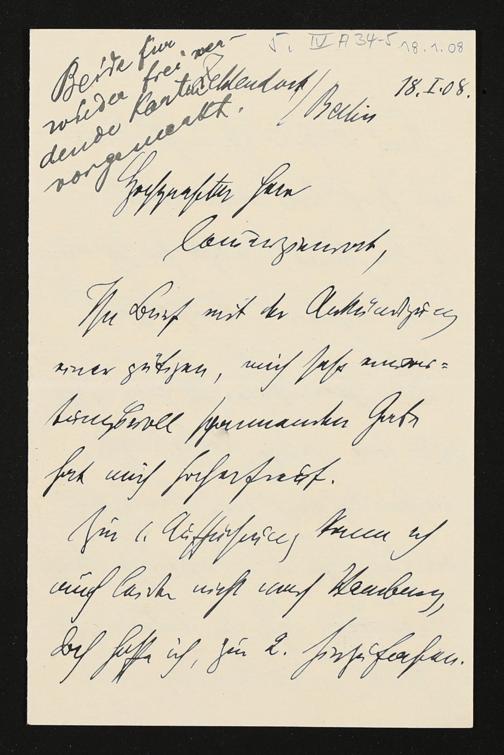 Beide für
wieder frei wer-
dende Karten
vorgemerkt.
5. IV A 34-5
18.1.08
Zehlendorf / Berlin
18.I.08.
Hochgeehrter Herr
Commerzienrat,
Ihr Brief mit der Ankündigung
einer gütigen, mich sehr erwar-
tungsvoll spannenden Gabe
hat mich hocherfreut.
Zur 1. Aufführung kann ich
auch leider nicht nach Hamburg,
doch hoffe ich, zur 2. hinzufahren.